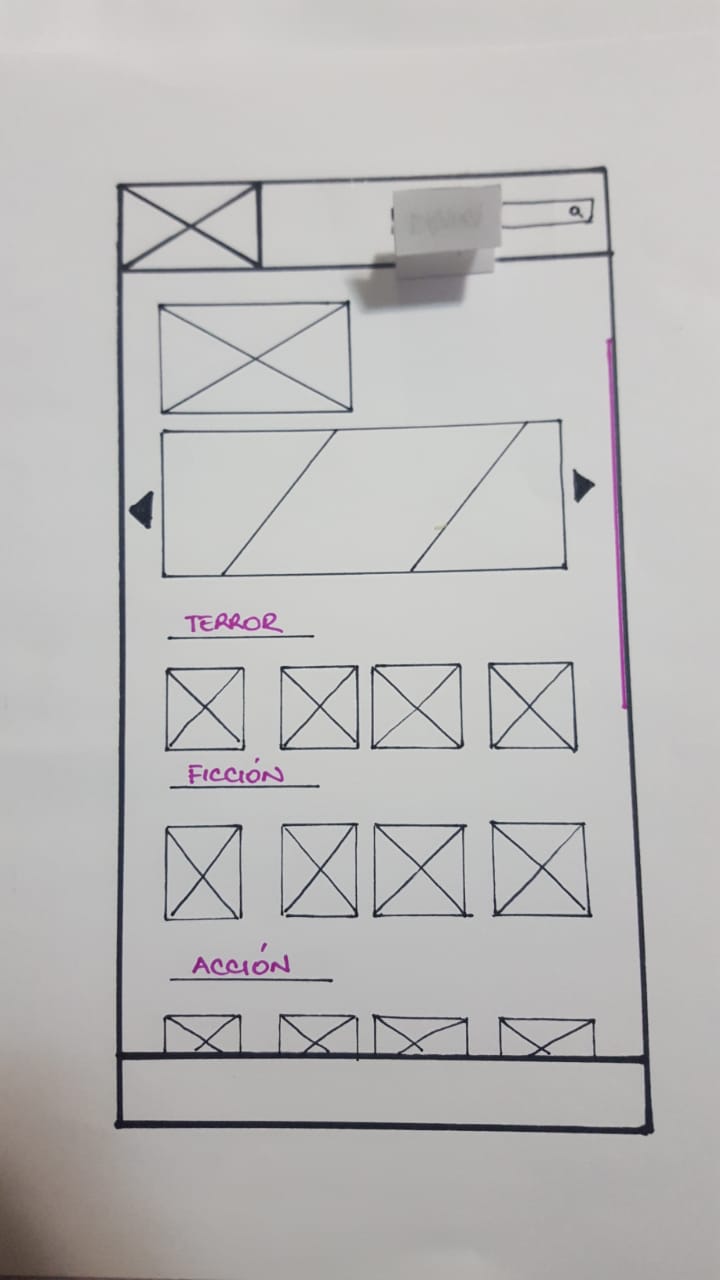 TERROR
FICCIÓN
ACCIÓN